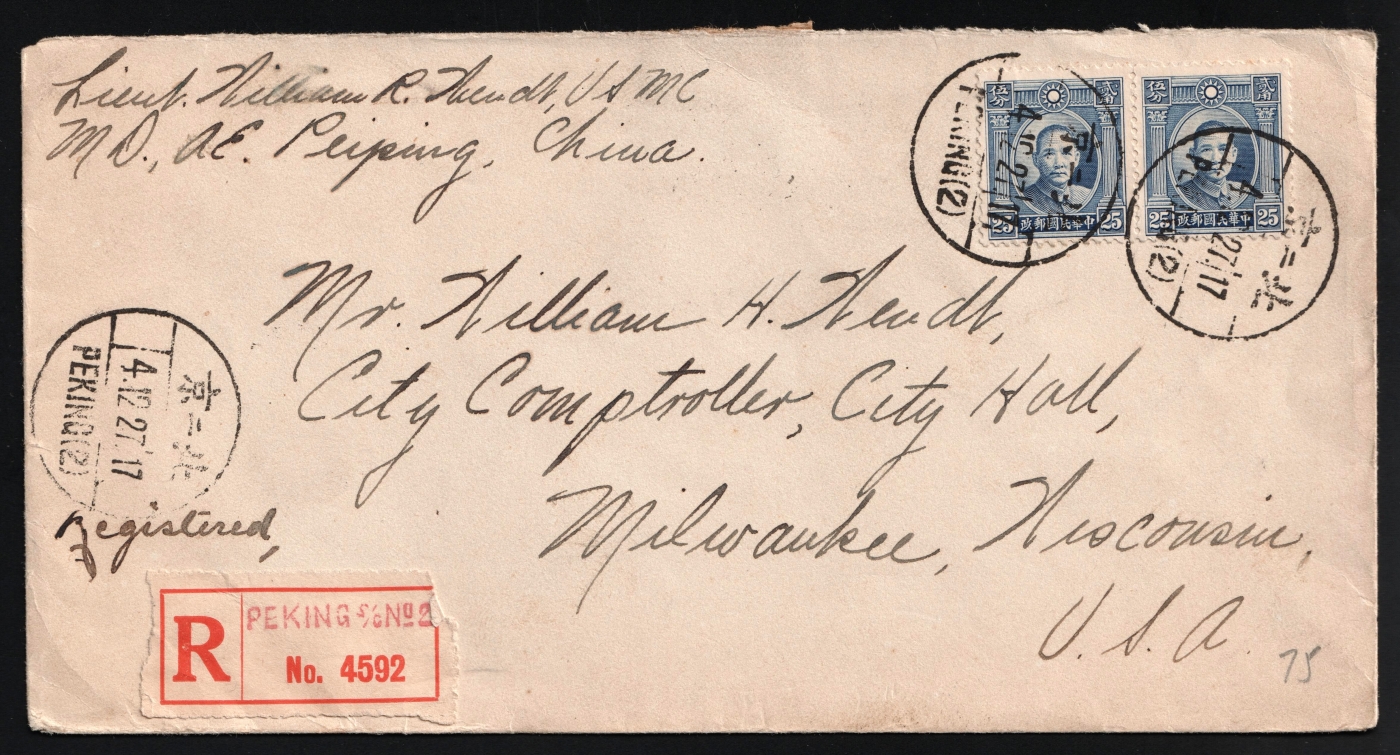 Lieut. William R. Wendt, USMC
M D., A E. Peiping, China.
伍分 貳角
25 中華民國郵政 25
伍分 貳角
25 中華民國郵政 25
京二北
4.12.27.17
PEKING(2)
Mr. William H. Wendt,
City Comptroller, City Hall,
Milwaukee, Wisconsin,
U. S. A.
京二北
4.12.27.17
PEKING(2)
Registered,
R
PEKING S/O No 2
No. 4592
75